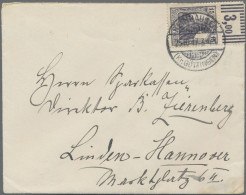 3,00
Herrn Sparkassen-
Direktor B. Zierenberg
Linden-Hannover
Marktplatz 6 II